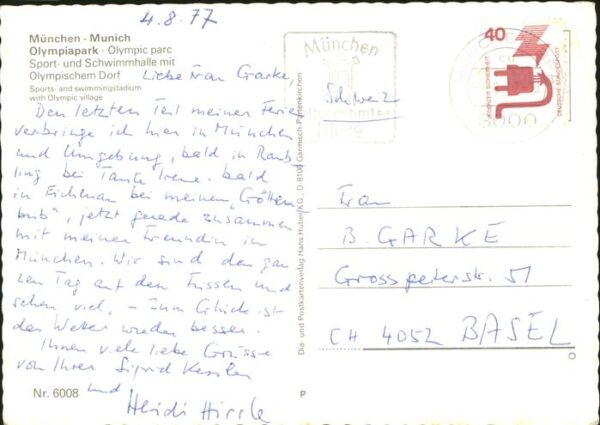 4.8.77
München - Munich
Olympiapark · Olympic parc
Sport- und Schwimmhalle mit
Olympischem Dorf
Sports- and swimmingstadium
with Olympic village
Liebe Frau Garke,
Den letzten Teil meiner Ferien
verbringe ich hier in München
und Umgebung, bald in Raub
ling bei Tante Irene. bald
in Eichenau bei meinem „Götten
bub", jetzt gerade zusammen
mit meiner Freundin in
München. Wir sind den gan
zen Tag auf den Füssen und
sehen viel, – zum Glück ist
das Wetter wieder besser.
Ihnen viele liebe Grüsse
von Ihrer Sigrid Kessler
und
Heidi Hirrle
Nr. 6008
Dia- und Postkartenverlag Hans Huber KG., D 8100 Garmisch-Partenkirchen
P
München
8000
40
DEUTSCHE BUNDESPOST
Schweiz
Frau
B. GARKE
Grosspeterstr. 51
CH 4052 BASEL